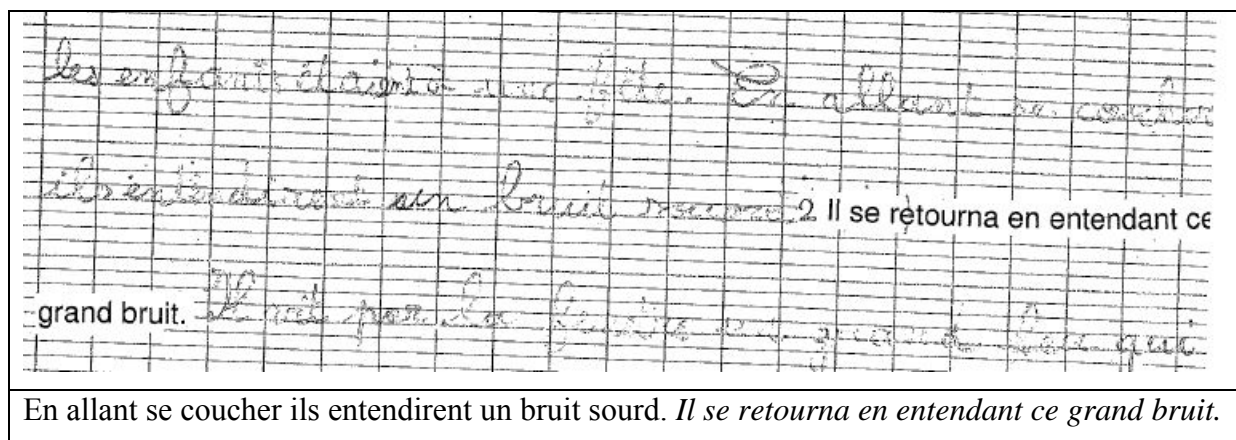 les enfants étaient à une fête. En allant se coucher
ils entendirent un bruit sourd 2 Il se retourna en entendant ce
grand bruit. Il vit par la fenêtre un grand qui
En allant se coucher ils entendirent un bruit sourd. Il se retourna en entendant ce grand bruit.